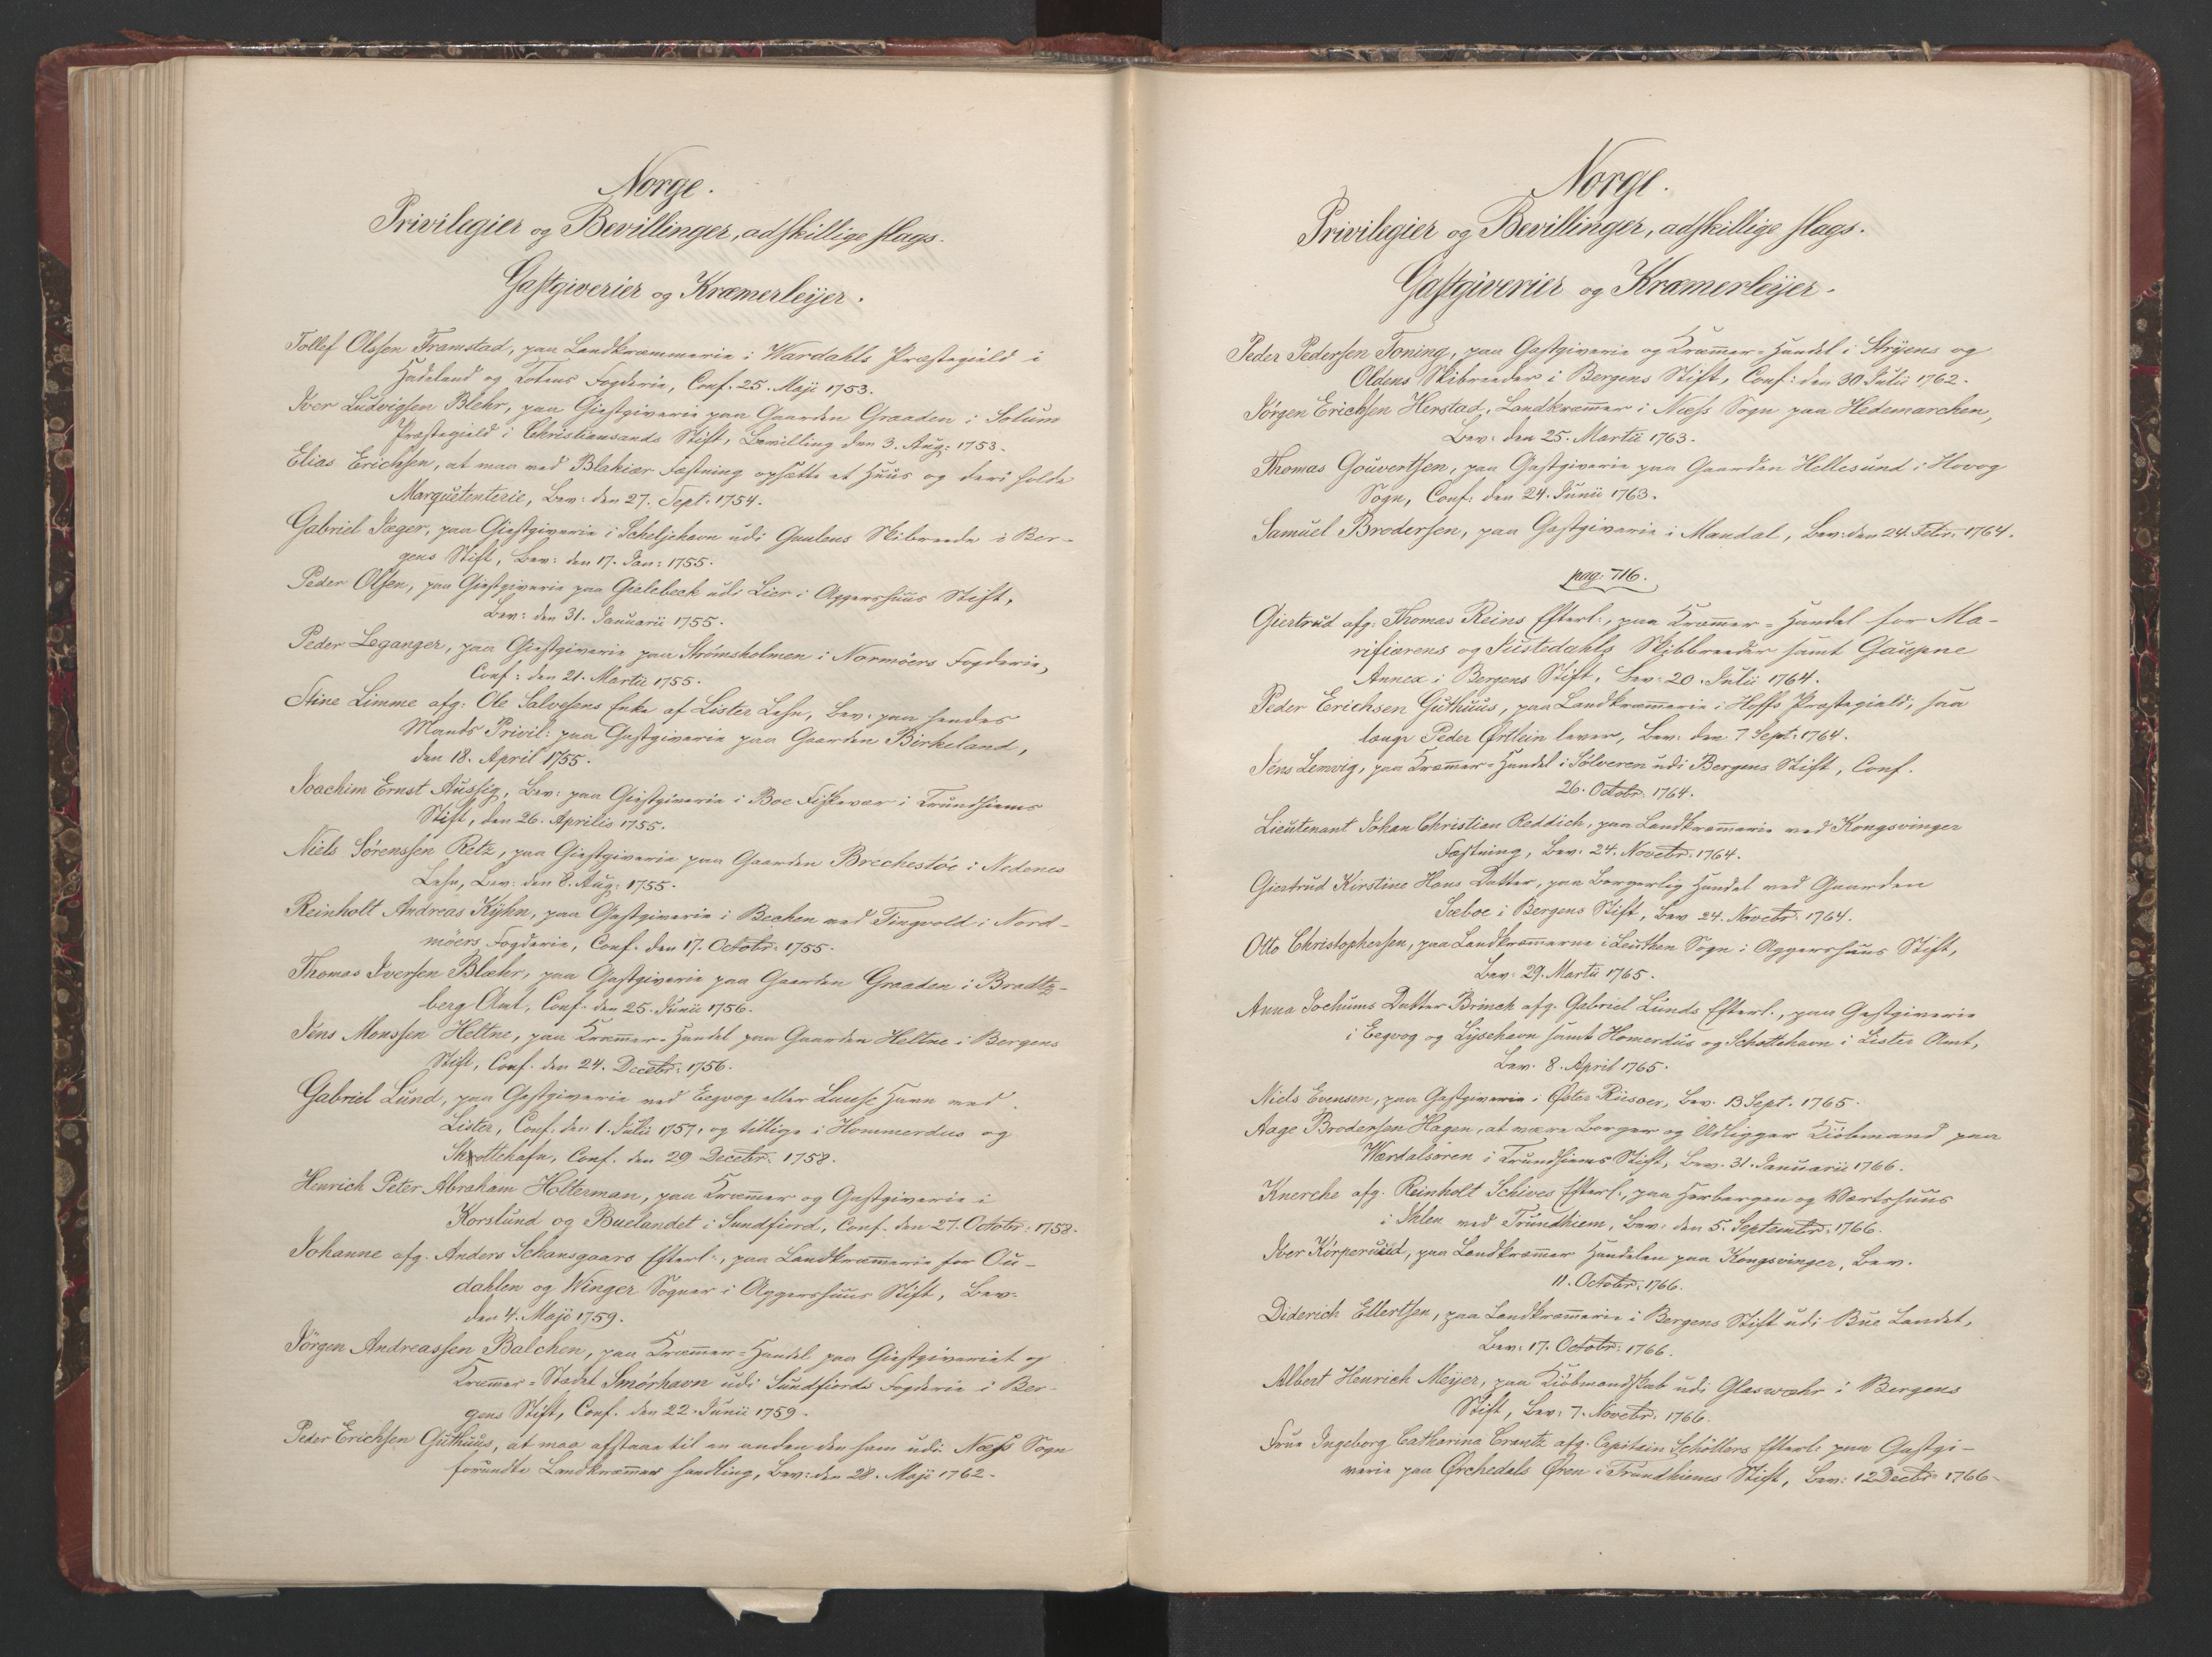 Norge.
Privilegier og Bevillinger, adskillige slags.
Gastgiverier og Kræmerleyer.
Tollef Olssen Framstad, paa Landkræmmerie i Wardahls Præstegield i
Hadeland og Totens Fogderie, Conf. 25. Maji 1753.
Iver Ludvigsen Blehr, paa Giestgiverie paa Gaarden Graaden i Solum
Præstegield i Christiansands Stift, Bevilling den 3. Aug: 1753.
Elias Erichsen, at maa ved Blakiær Fæstning opsætte et Huus og deri holde
Marquetenterie, Bev: den 27. Sept: 1754.
Gabriel Jæger, paa Giestgiverie i Scheljehavn udi Gulens Skibreede i Ber-
gens Stift, Bev: den 17. Jan: 1755.
Peder Olsen, paa Giestgiverie paa Gielebeck udi Lier i Aggershuus Stift,
Bev: den 31. Januarii 1755.
Peder Leganger, paa Giestgiverie paa Strømsholmen i Normøers Fogderie,
Conf: den 21. Martii 1755.
Stine Limme afg: Ole Salvesens Enke af Lister Lehn, Bev: paa hendes
Mands Privil: paa Gastgiverie paa Gaarden Birkeland,
den 18. April 1755.
Joachim Ernst Aussig, Bev: paa Giestgiverie i Boe Fiskevær i Trundhiems
Stift, den 26. Aprilis 1755.
Niels Sørenssen Retz, paa Giestgiverie paa Gaarden Brechestøe i Nedenes
Lehn, Bev: den 8. Aug: 1755.
Reinholt Andreas Kyhn, paa Gastgiverie i Bechen ved Tingvold i Nord-
møers Fogderie, Conf. den 17. Octobr: 1755.
Thomas Iversen Blæhr, paa Gastgiverie paa Gaarden Graaden i Bradtz-
berg Amt, Conf. den 25. Junii 1756.
Jens Monssen Heltne, paa Kræmer-Handel paa Gaarden Heltne i Bergens
Stift, Conf. den 24. Decebr: 1756.
Gabriel Lund, paa Gastgiverie ved Eegvog eller Lause Havn ved
Lister, Conf: den 1. Julii 1757, og tillige i Hommerdus og
Skottehafn, Conf. den 29 Decebr: 1758.
Henrich Peter Abraham Holterman, paa Kræmer og Gastgiverie i
Korslund og Buelandet i Sundfiord, Conf. den 27. Octobr: 1758.
Johanne afg. Anders Schansgaars Efterl:, paa Landkræmerie for Ou-
dahlen og Winger Sogner i Aggershuus Stift, Bev:
den 4. Maji 1759.
Jørgen Andreassen Balchen, paa Kræmer-Handel paa Giestgiveriet og
Kræmer-Stædet Smørhavn udi Sundfiords Fogderie i Ber-
gens Stift, Conf. den 22. Junii 1759.
Peder Erichsen Guthuus, at maa afstaae til en anden den ham udi Næss Sogn
forundte Landkræmer handling, Bev: den 28. Maji 1762.
Norge.
Privilegier og Bevillinger, adskillige slags.
Gastgiverier og Kræmerleyer.
Peder Pedersen Toning, paa Gastgiverie og Kræmer-Handel i Stryens og
Oldens Skibreeder i Bergens Stift, Conf: den 30 Julii 1762.
Jørgen Erichsen Herstad, Landkræmer i Næss Sogn paa Hedemarchen,
Bev: den 25. Martii 1763.
Thomas Gouvertsen, paa Gastgiverie paa Gaarden Hellesund i Hovog
Sogn, Conf: den 24. Junii 1763.
Samuel Brodersen, paa Gastgiverie i Mandal, Bev: den 24. Febr: 1764.
pag: 716.
Giertrud afg: Thomas Reins Efterl:, paa Kræmer-Handel for Ma-
rifiærens og Justedahls Skibbreeder samt Gaupne
Annex i Bergens Stift, Bev: 20. Julii 1764.
Peder Erichsen Guthuus, paa Landkræmerie i Hoffs Præstegield, saa
længe Peder Ørtlein lever, Bev: den 7 Sept: 1764.
Jens Lemvig, paa Kræmer-Handel i Sølveren udi Bergens Stift, Conf.
26. Octobr: 1764.
Lieutenant Johan Christian Reddich, paa Landkræmerie ved Kongsvinger
Fæstning, Bev: 24. Novebr: 1764.
Giertrud Kirstine Hans Datter, paa Borgerlig Handel ved Gaarden
Sæboe i Bergens Stift, Bev 24. Novebr: 1764.
Otto Christophersen, paa Landkræmerne i Leuthen Sogn i Aggershuus Stift,
Bev: 29. Martii 1765.
Anna Jochums Datter Brinch afg. Gabriel Lunds Efterl., paa Gastgiverie
i Eegvog og Lysehavn samt Homerdus og Schottehavn i Lister Amt,
Bev. 8. April 1765.
Niels Evensen, paa Gastgiverie i Øster Riisøer, Bev. 13 Sept. 1765.
Aage Brodersen Hagen, at være Borger og Udligger Kiøbmand paa
Wærdalsøren i Trundhiems Stift, Bev. 31. Januarii 1766.
Knerche afg. Reinholt Schives Efterl:, paa Herbergen og Wærtshuus
i Ihlen ved Trundhiem, Bev: den 5. Septembr: 1766.
Iver Kørperuud, paa Landkræmer Handelen paa Kongsvinger, Bev.
11. Octobr: 1766.
Diderich Ellertsen, paa Landkræmerie i Bergens Stift udi Bue Landet,
Bev: 17. Octobr: 1766.
Albert Henrich Meyer, paa Kiøbmandskab udi Glaswæhr i Bergens
Stift, Bev: 7. Novebr: 1766.
Frue Ingeborg Catharina Crantz afg. Capitain Schøllers Efterl: paa Gastgi-
verie paa Ørchedals Øren i Trundhiems Stift, Bev: 12 Decbr 1766.